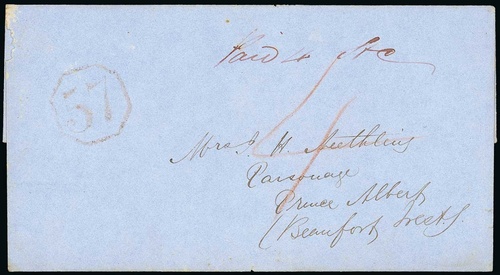 Paid 4
57
4
Mrs J. H. Neethling
Parsonage
Prince Albert
(Beaufort West).